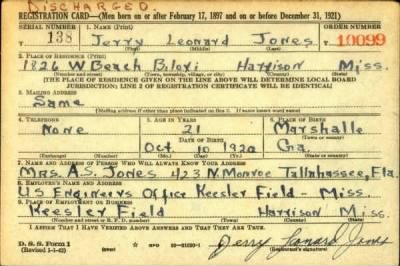 DISCHARGED.
REGISTRATION CARD—(Men born on or after February 17, 1897 and on or before December 31, 1921)
SERIAL NUMBER 1. NAME (Print) ORDER NUMBER
T 138 Jerry Leonard Jones T 10099
(First) (Middle) (Last)
2. PLACE OF RESIDENCE (Print)
1826 W Beach Biloxi Harrison Miss.
(Number and street) (Town, township, village, or city) (County) (State)
[THE PLACE OF RESIDENCE GIVEN ON THE LINE ABOVE WILL DETERMINE LOCAL BOARD
JURISDICTION; LINE 2 OF REGISTRATION CERTIFICATE WILL BE IDENTICAL]
3. MAILING ADDRESS
Same
[Mailing address if other than place indicated on line 2. If same insert word same]
4. TELEPHONE 5. AGE IN YEARS 6. PLACE OF BIRTH
None 21 Marshalle
DATE OF BIRTH (Town or county)
Oct 10 1920 Ga.
(Exchange) (Number) (Mo.) (Day) (Yr.) (State or country)
7. NAME AND ADDRESS OF PERSON WHO WILL ALWAYS KNOW YOUR ADDRESS
Mrs. A.S. Jones 423 N. Monroe Tallahassee, Fla.
8. EMPLOYER'S NAME AND ADDRESS
US Engineers Office Keesler Field - Miss.
9. PLACE OF EMPLOYMENT OR BUSINESS
Keesler Field Harrison Miss.
(Number and street or R. F. D. number) (Town) (County) (State)
I AFFIRM THAT I HAVE VERIFIED ABOVE ANSWERS AND THAT THEY ARE TRUE.
D. S. S. Form 1
(Revised 1-1-42) (over)